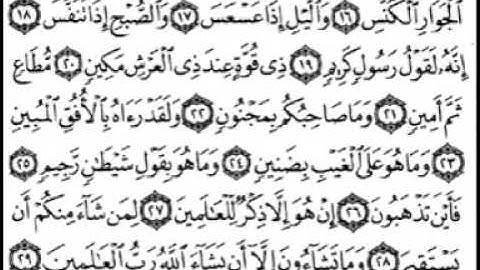 الْجَوَارِ الْكُنَّسِ ١٦ وَالَّيْلِ إِذَا عَسْعَسَ ١٧ وَالصُّبْحِ إِذَا تَنَفَّسَ ١٨
إِنَّهُ لَقَوْلُ رَسُولٍ كَرِيمٍ ١٩ ذِى قُوَّةٍ عِندَ ذِى الْعَرْشِ مَكِينٍ ٢٠ مُّطَاعٍ
ثَمَّ أَمِينٍ ٢١ وَمَا صَاحِبُكُم بِمَجْنُونٍ ٢٢ وَلَقَدْ رَءَاهُ بِالْأُفُقِ الْمُبِينِ
٢٣ وَمَا هُوَ عَلَى الْغَيْبِ بِضَنِينٍ ٢٤ وَمَا هُوَ بِقَوْلِ شَيْطَانٍ رَّجِيمٍ ٢٥
فَأَيْنَ تَذْهَبُونَ ٢٦ إِنْ هُوَ إِلَّا ذِكْرٌ لِّلْعَالَمِينَ ٢٧ لِمَن شَاءَ مِنكُمْ أَن
يَسْتَقِيمَ ٢٨ وَمَا تَشَاءُونَ إِلَّا أَن يَشَاءَ اللَّهُ رَبُّ الْعَالَمِينَ ٢٩